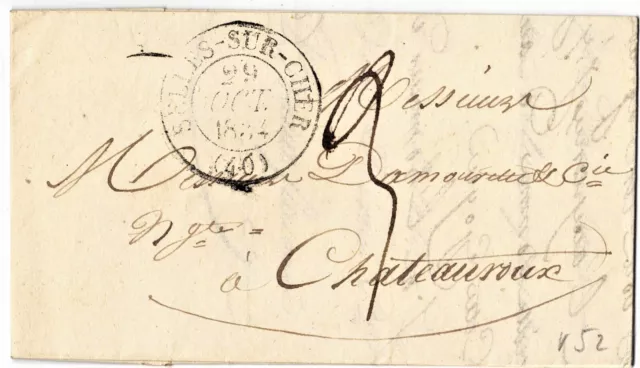 SELLES-SUR-CHER
29
OCT.
1834
(40)
3
Messieurs
Damourette & Cie
Ngts =
à Châteauroux
V 52